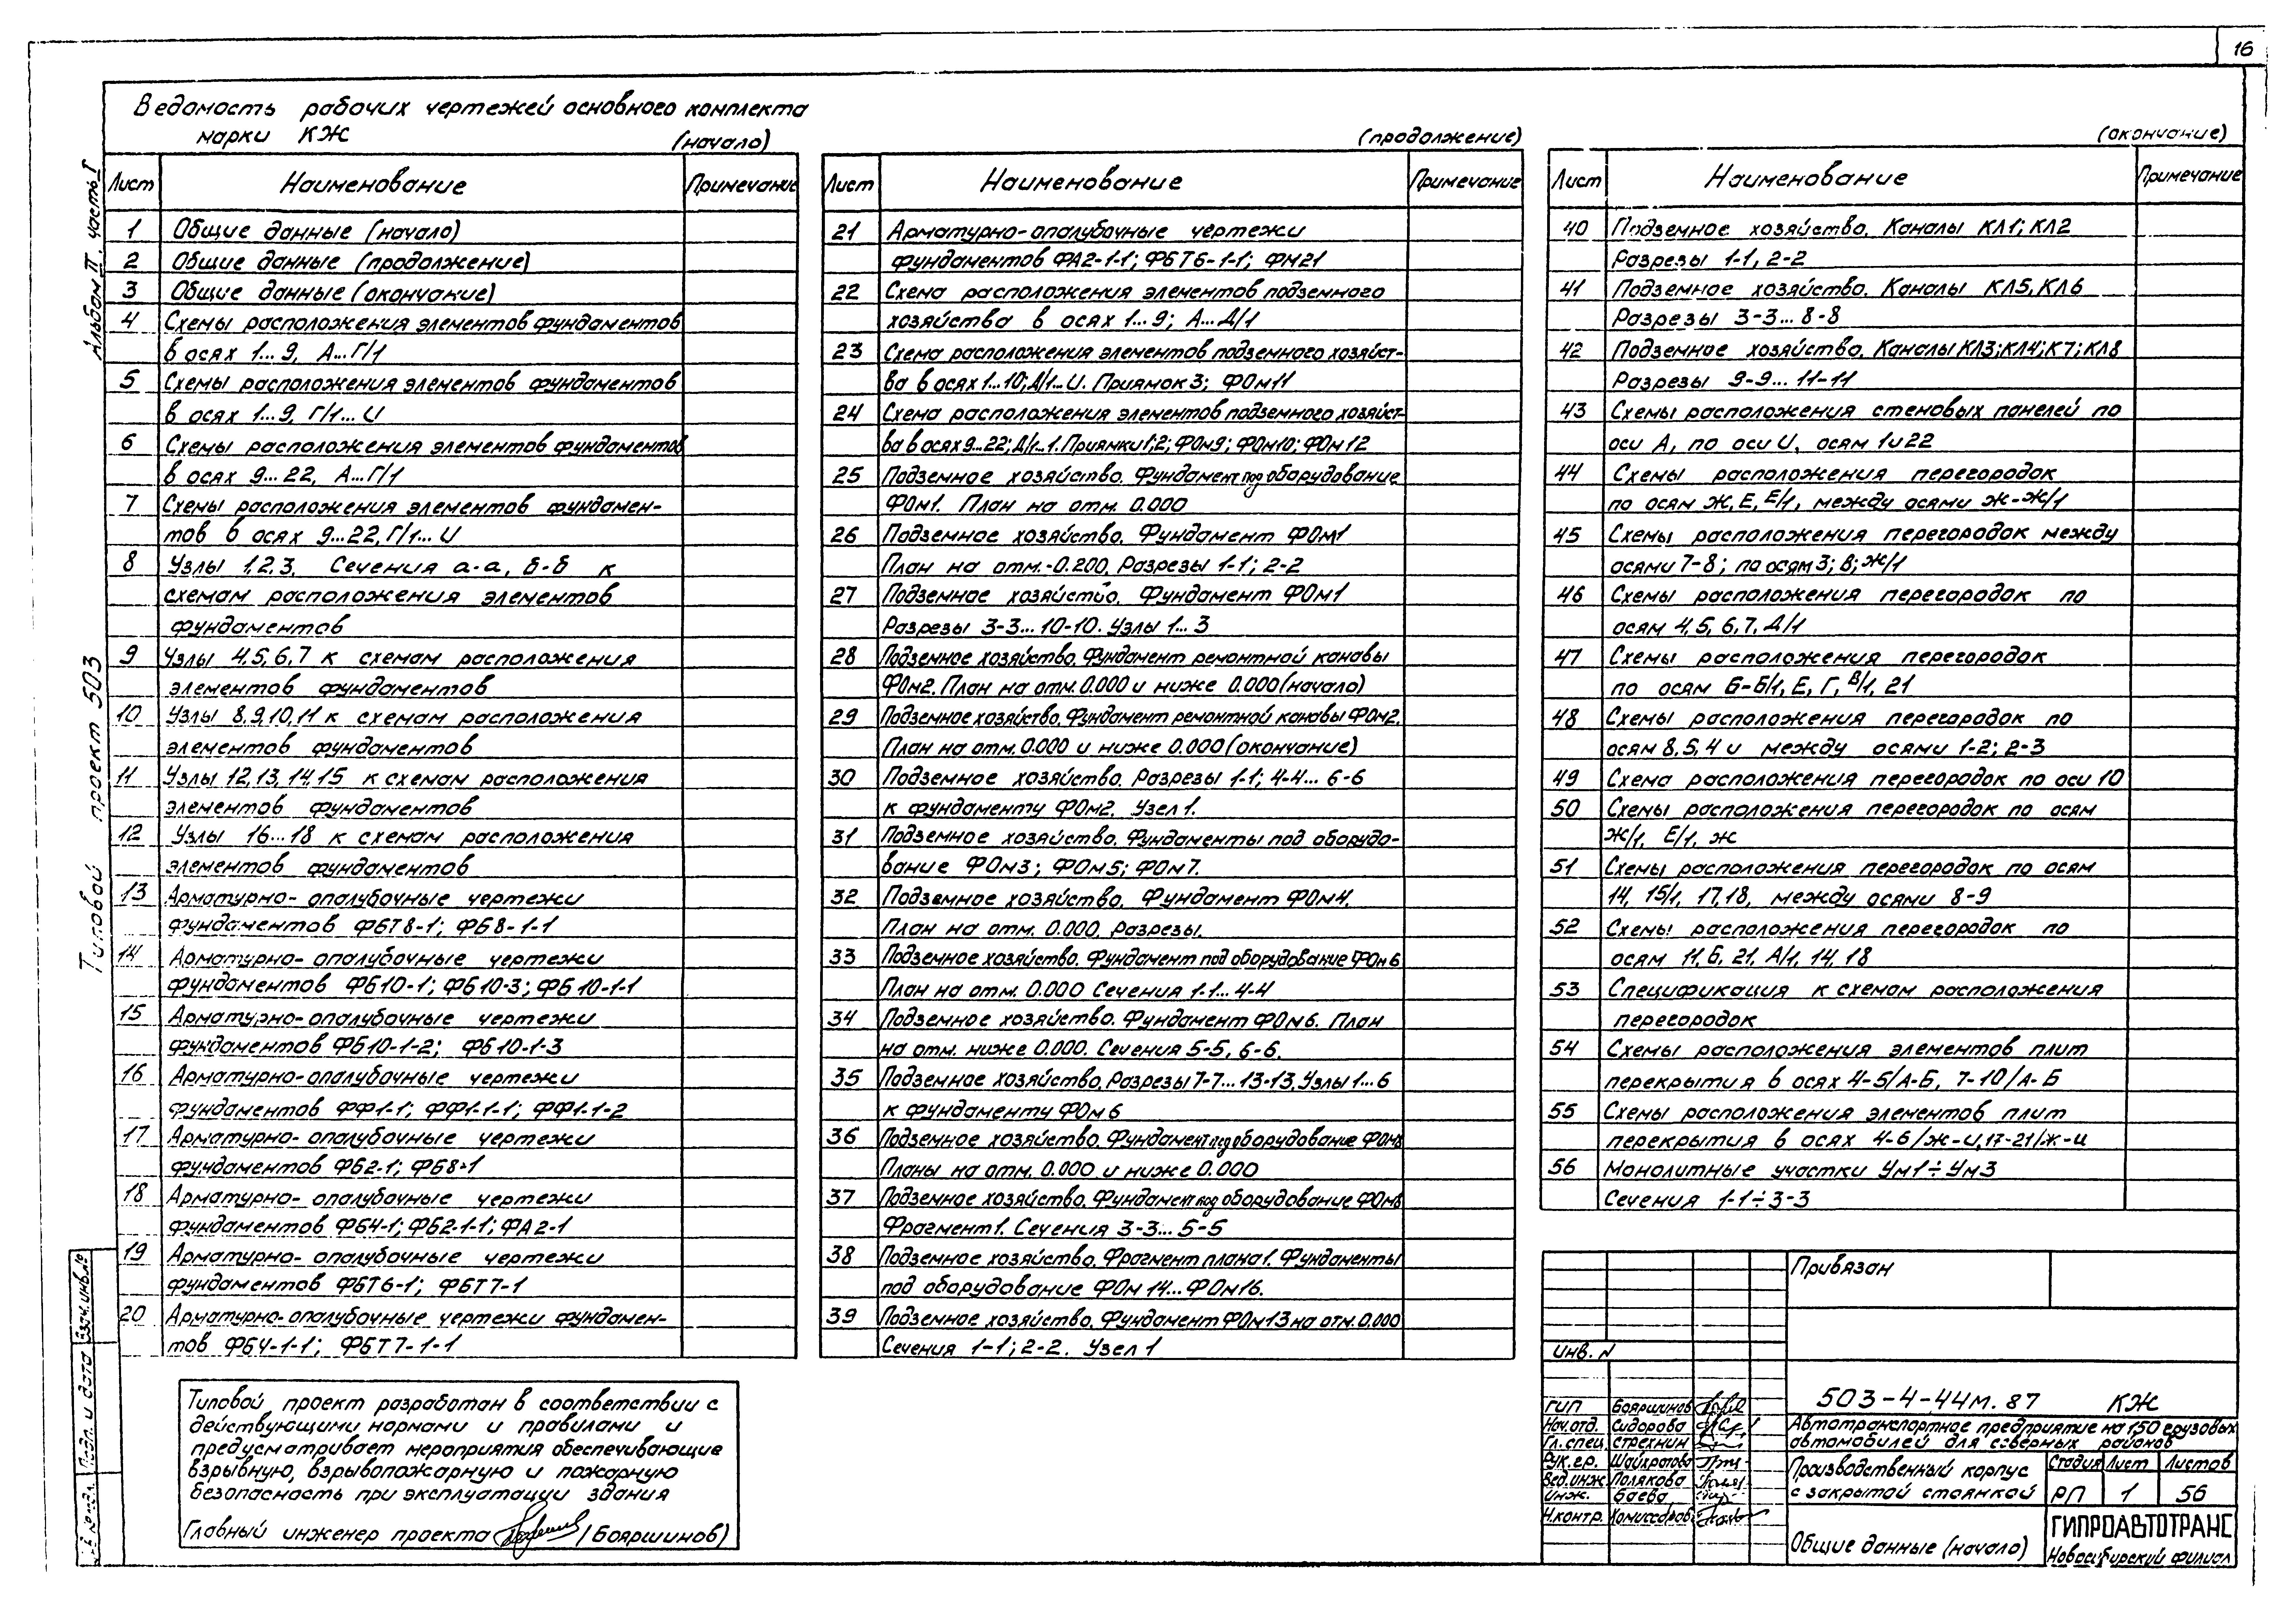 16
Ведомость рабочих чертежей основного комплекта
марки КЖ
(начало)
Лист Наименование Примечание
1 Общие данные (начало)
2 Общие данные (продолжение)
3 Общие данные (окончание)
4 Схемы расположения элементов фундаментов
в осях 1...9, А...Г/1
5 Схемы расположения элементов фундаментов
в осях 1...9, Г/1...И
6 Схемы расположения элементов фундаментов
в осях 9...22, А...Г/1
7 Схемы расположения элементов фундамен-
тов в осях 9...22, Г/1...И
8 Узлы 1,2,3. Сечения а-а, б-б к
схемам расположения элементов
фундаментов
9 Узлы 4,5,6,7 к схемам расположения
элементов фундаментов
10 Узлы 8,9,10,11 к схемам расположения
элементов фундаментов
11 Узлы 12,13,14,15 к схемам расположения
элементов фундаментов
12 Узлы 16...18 к схемам расположения
элементов фундаментов
13 Арматурно-опалубочные чертежи
фундаментов ФБТ8-1; ФБ8-1-1
14 Арматурно-опалубочные чертежи
фундаментов ФБ10-1; ФБ10-3; ФБ10-1-1
15 Арматурно-опалубочные чертежи
фундаментов ФБ10-1-2; ФБ10-1-3
16 Арматурно-опалубочные чертежи
фундаментов ФФ1-1; ФФ1-1-1; ФФ1-1-2
17 Арматурно-опалубочные чертежи
фундаментов ФБ2-1; ФБ8-1
18 Арматурно-опалубочные чертежи
фундаментов ФБ4-1; ФБ2-1-1; ФА2-1
19 Арматурно-опалубочные чертежи
фундаментов ФБТ6-1; ФБТ7-1
20 Арматурно-опалубочные чертежи фундамен-
тов ФБ4-1-1; ФБТ7-1-1
(продолжение)
Лист Наименование Примечание
21 Арматурно-опалубочные чертежи
фундаментов ФА2-1-1; ФБТ6-1-1; ФМ21
22 Схема расположения элементов подземного
хозяйства в осях 1...9; А...Д/1
23 Схема расположения элементов подземного хозяйст-
ва в осях 1...10; Д/1...И. Приямок 3; ФОм11
24 Схема расположения элементов подземного хозяйст-
ва в осях 9...22; Д/1...1. Приямки 1;2; ФОм9; ФОм10; ФОм12
25 Подземное хозяйство. Фундамент под оборудование
ФОм1. План на отм. 0.000
26 Подземное хозяйство. Фундамент ФОм1
План на отм.-0.200. Разрезы 1-1; 2-2
27 Подземное хозяйство. Фундамент ФОм1
Разрезы 3-3...10-10. Узлы 1...3
28 Подземное хозяйство. Фундамент ремонтной канавы
ФОм2. План на отм. 0.000 и ниже 0.000 (начало)
29 Подземное хозяйство. Фундамент ремонтной канавы ФОм2.
План на отм. 0.000 и ниже 0.000 (окончание)
30 Подземное хозяйство. Разрезы 1-1; 4-4...6-6
к фундаменту ФОм2. Узел 1.
31 Подземное хозяйство. Фундаменты под оборудо-
вание ФОм3; ФОм5; ФОм7.
32 Подземное хозяйство. Фундамент ФОм4.
План на отм. 0.000. Разрезы.
33 Подземное хозяйство. Фундамент под оборудование ФОм6
План на отм. 0.000 Сечения 1-1...4-4
34 Подземное хозяйство. Фундамент ФОм6. План
на отм. ниже 0.000. Сечения 5-5, 6-6.
35 Подземное хозяйство. Разрезы 7-7...13-13. Узлы 1...6
к фундаменту ФОм6
36 Подземное хозяйство. Фундамент под оборудование ФОм8
Планы на отм. 0.000 и ниже 0.000
37 Подземное хозяйство. Фундамент под оборудование ФОм8
Фрагмент 1. Сечения 3-3...5-5
38 Подземное хозяйство. Фрагмент плана 1. Фундаменты
под оборудование ФОм14...ФОм16.
39 Подземное хозяйство. Фундамент ФОм13 на отм. 0.000
Сечения 1-1; 2-2. Узел 1
(окончание)
Лист Наименование Примечание
40 Подземное хозяйство. Каналы КЛ1; КЛ2
Разрезы 1-1, 2-2
41 Подземное хозяйство. Каналы КЛ5, КЛ6
Разрезы 3-3...8-8
42 Подземное хозяйство. Каналы КЛ3; КЛ4; К7; КЛ8
Разрезы 9-9...11-11
43 Схемы расположения стеновых панелей по
оси А, по оси И, осям 1 и 22
44 Схемы расположения перегородок
по осям Ж, Е, Е/1, между осями Ж-Ж/1
45 Схемы расположения перегородок между
осями 7-8; по осям 3; В; Ж/1
46 Схемы расположения перегородок по
осям 4,5,6,7, Д/1
47 Схемы расположения перегородок
по осям Б-Б/1, Е, Г, В/1, 21
48 Схемы расположения перегородок по
осям 8,5,4 и между осями 1-2; 2-3
49 Схема расположения перегородок по оси 10
50 Схемы расположения перегородок по осям
Ж/1, Е/1, Ж
51 Схемы расположения перегородок по осям
14, 15/1, 17,18, между осями 8-9
52 Схемы расположения перегородок по
осям 11, Б, 21, А/1, 14, 18
53 Спецификация к схемам расположения
перегородок
54 Схемы расположения элементов плит
перекрытия в осях 4-5/А-Б, 7-10/А-Б
55 Схемы расположения элементов плит
перекрытия в осях 4-6/Ж-И, 17-21/Ж-И
56 Монолитные участки Ум1÷Ум3
Сечения 1-1÷3-3
Альбом II. часть I
Типовой проект 503
Взам. инв. №
Подп. и дата
Типовой проект разработан в соответствии с
действующими нормами и правилами и
предусматривает мероприятия обеспечивающие
взрывную, взрывопожарную и пожарную
безопасность при эксплуатации здания
Главный инженер проекта (Бояршинов)
Привязан
Инв. N
503-4-44м.87 КЖ
ГИП Бояршинов
Нач.отд. Сидорова
Гл.спец. Стрехнин
Рук.гр.
Вед.инж. Полякова
Инж. Баева
Н.контр. Комиссаров
Автотранспортное предприятие на 150 грузовых
автомобилей для северных районов
Производственный корпус
с закрытой стоянкой
Стадия Лист Листов
РП 1 56
Общие данные (начало)
ГИПРОАВТОТРАНС
Новосибирский филиал